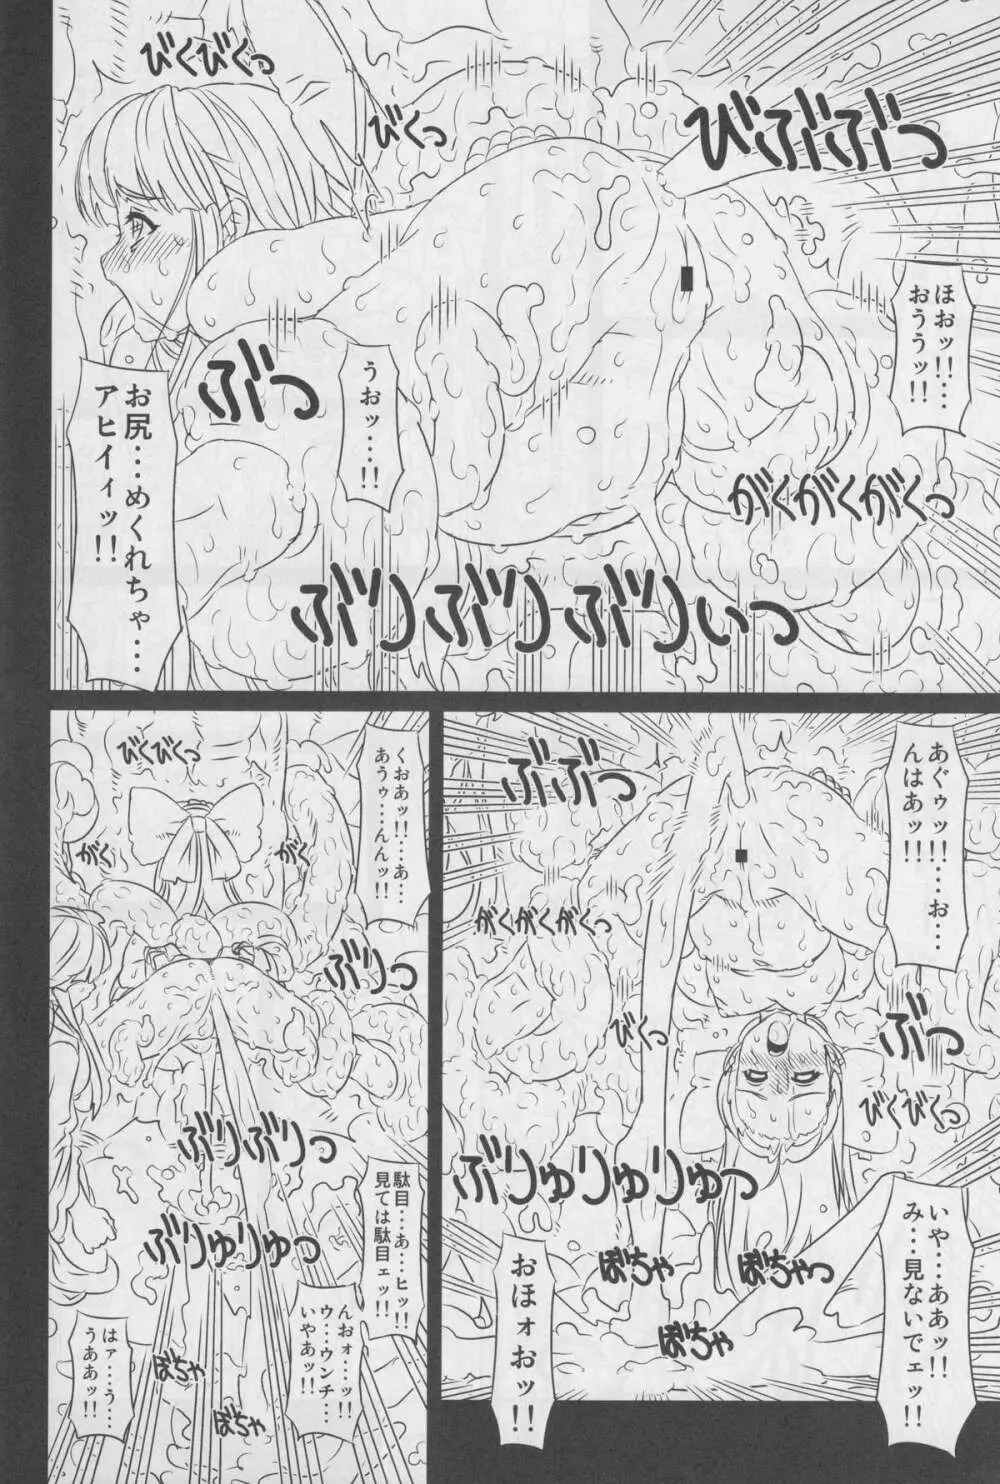 びくびくっ
びくっ
びぶぶぶっ
ほおッ!!‥‥
おううッ!!
うおッ‥‥!!
ぶっ
お尻‥‥めくれちゃ‥‥
アヒイィッ!!
がくがくがくっ
ぶりぶりぶりぃっ
あぐゥッ!!‥‥お‥‥
んはあッ!!
ぶぶっ
がくがくがくっ
びくっ
ぶっ
びくびくっ
ぶりゅりゅりゅっ
ぼちゃ
ぼちゃっ
ぼちゃ
いや‥‥ああッ!!
み‥‥見ないでェッ!!
おほォおッ!!
くおあッ!!‥‥あ‥‥
あうゥ‥‥んんッ!!
びくびくっ
がく
がく
ぶりっ
ぶりぶりっ
ぶりゅりゅっ
駄目‥‥あ‥‥ヒッ!!
見ては駄目ェッ!!
んおォ‥‥ッ!!
ウ‥‥ウンチ‥‥
いやあッ!!
はァ‥‥う‥‥
うああッ!!
ぼちゃ
ぼちゃ